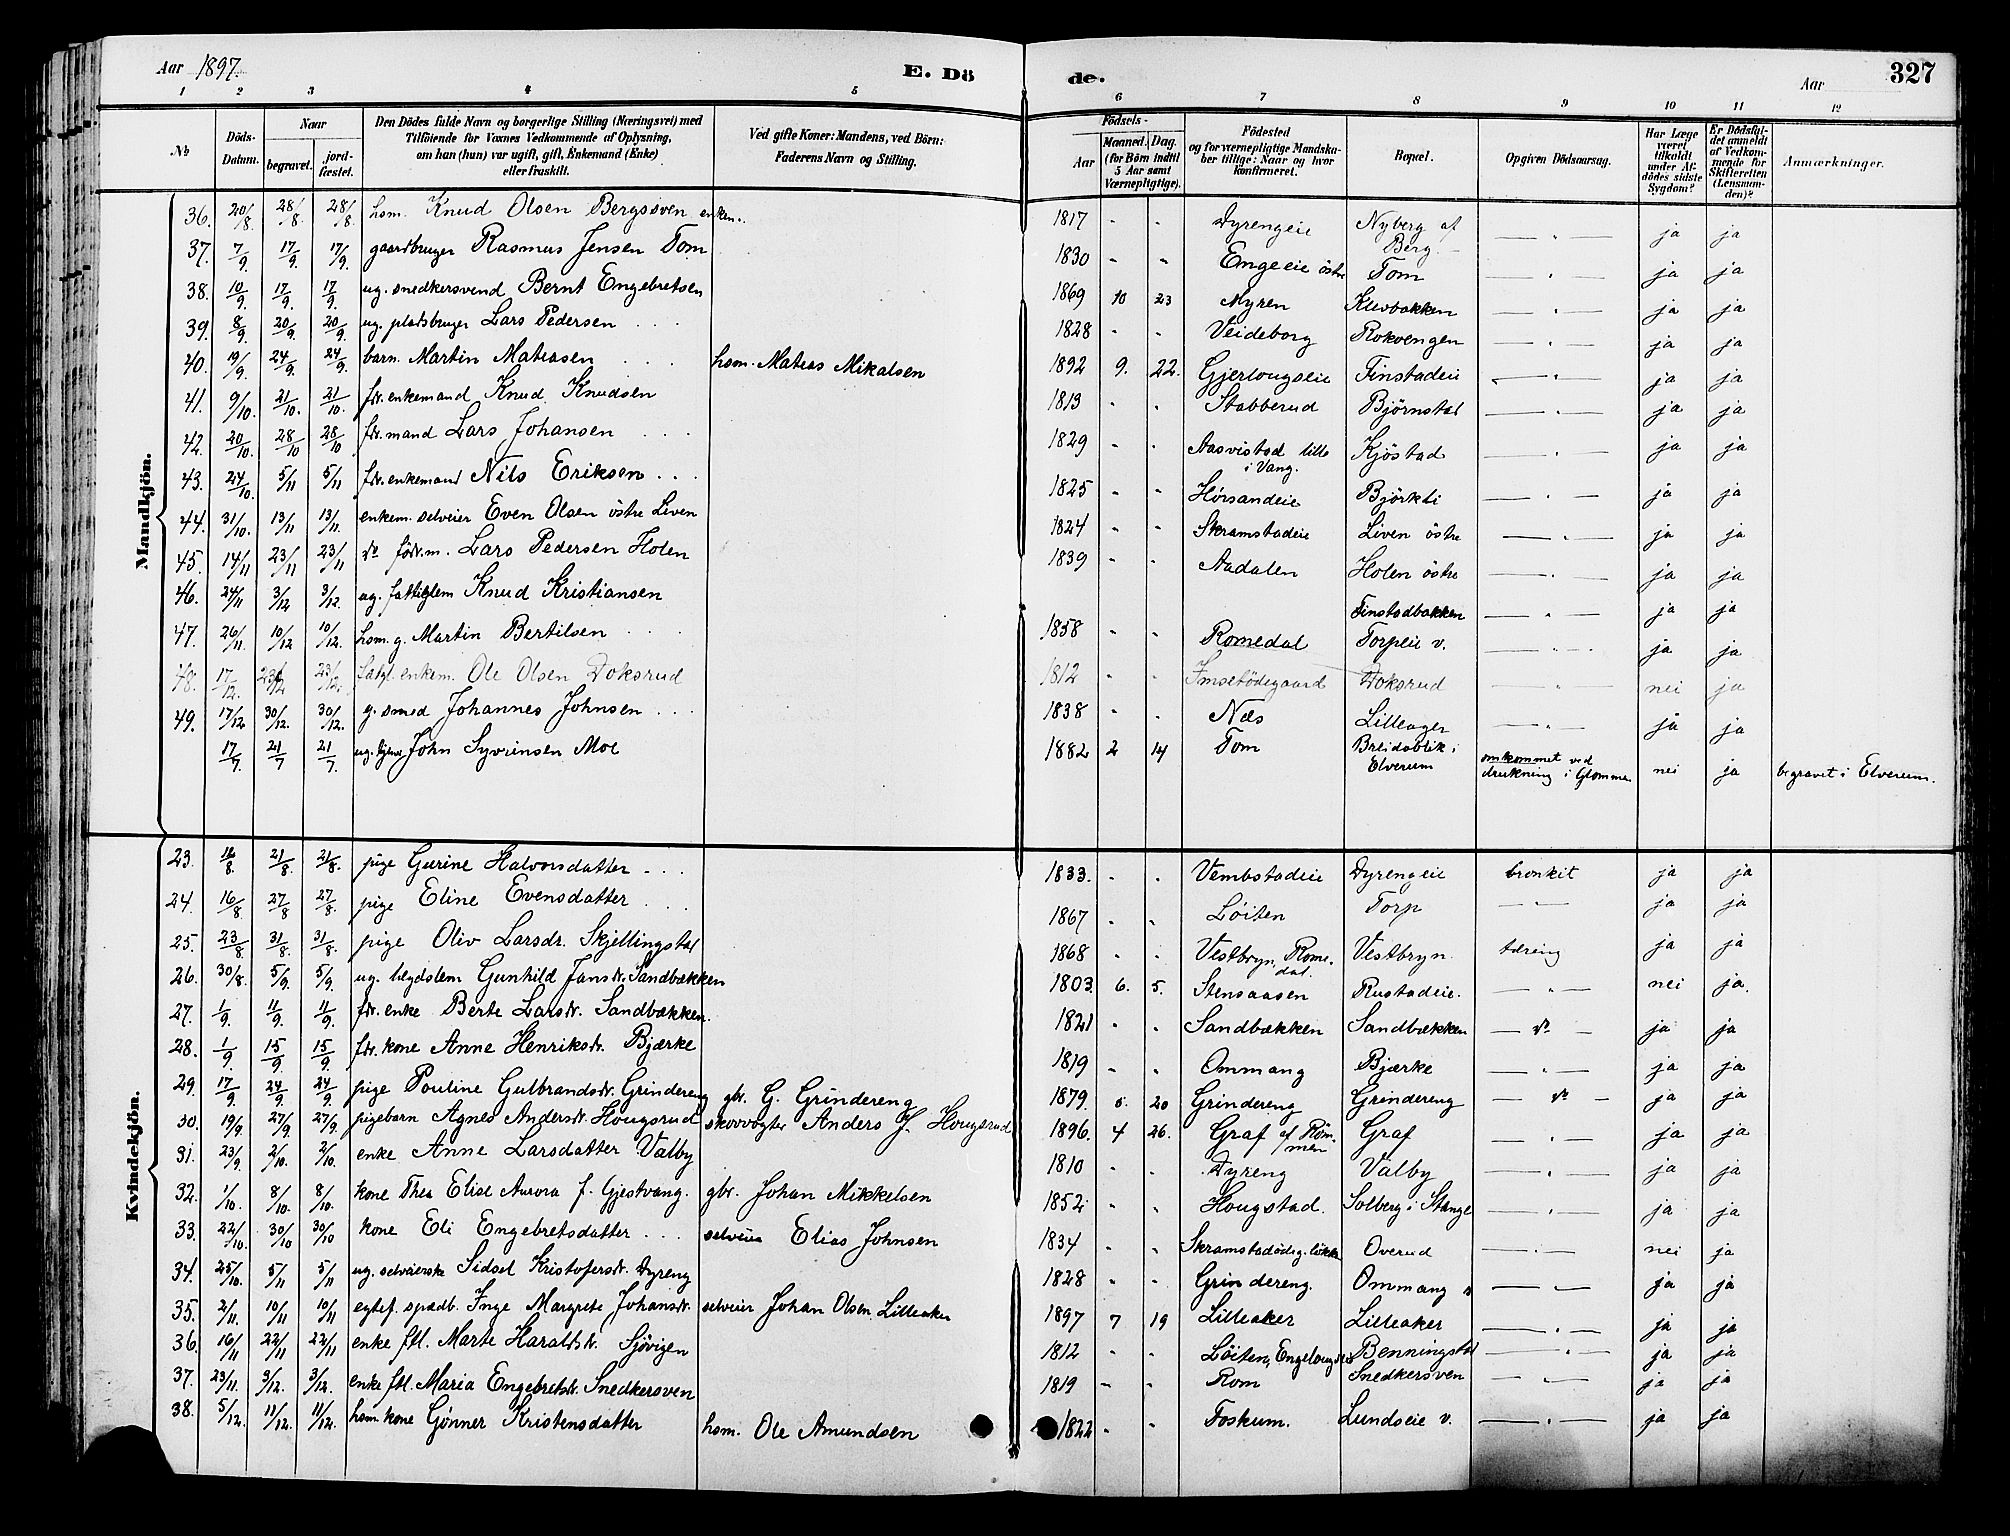 Aar 1897. E. Dö de. Aar 327
1 2 3 4 5 6 7 8 9 10 11 12
№ Döds-Datum. Naar begravet. jord-fæstet. Den Dödes fulde Navn og borgerlige Stilling (Næringsvei) med Tilföiende for Voxnes Vedkommende af Oplysning, om han (hun) var ugift, gift, Enkemand (Enke) eller fraskilt. Ved gifte Koner: Mandens, ved Börn: Faderens Navn og Stilling. Födsels- Aar Maaned. Dag. (for Börn indtil 5 Aar samt Værnepligtige). Födested og for værnepligtige Mandskaber tillige: Naar og hvor konfirmeret. Bopæl. Opgiven Dödsaarsag. Har Læge været tilkaldt under Afdödes sidste Sygdom? Er Dödsfaldet anmeldt af Vedkommende for Skifteretten (Lensmanden)? Anmærkninger.
Mandkjön.
36. 20/8. 28/8 28/8. hsm. Knud Olsen Bergsöven enkem. 1817 - - Dyrengeie Nyberg af Berg — " — ja ja
37. 7/9. 17/9. 17/9. gaardbruger Rasmus Jensen Tom 1830 - - Engeeie östre Tom — " — ja ja
38. 10/9. 17/9. 17/9. ug. snedkersvend Bernt Engebretsen 1869 10 23 Myren Klevbakken — " — ja ja
39. 8/9 20/9. 20/9. ug. pladsbruger Lars Pedersen 1828 - - Veideborg Rokvengen — " — ja ja
40. 19/9. 24/9. 24/9. barn. Martin Matiasen hsm. Matias Mikalsen 1892 9. 22. Gjerlougseie Finstadeie — " — ja ja
41. 9/10. 21/10. 21/10. fdr. enkemand Knud Knudsen 1813 - - Stabberud Björnstad — " — ja ja
42. 20/10. 28/10 28/10 fdr. mand Lars Johansen 1829 - - Aasvistad lille i Vang. Kjöstad — " — ja ja
43. 24/10. 5/11 5/11 fdr. enkemand Nils Eriksen 1825 - - Hörsandeie Björkli — " — ja ja
44. 31/10. 13/11 13/11. enkem. selveier Even Olsen östre Liven 1824 - - Skramstadeie Liven östre — " — ja ja
45. 14/11 23/11 23/11 do födr. m. Lars Pedersen Holen 1839 - - Aadalen Holen östre — " — ja ja
46. 24/11 3/12 3/12. ug. fattiglem Knud Kristiansen Finstadbakken — " — ja ja
47. 26/11 10/12 10/12. hsm. g. Martin Bertilsen 1858 - - Romedal Torpeie v. — " — ja ja
48. 17/12. 23/12 23/12. fatgl. enkem. Ole Olsen Doksrud 1812 - - Imsetödegaard Doksrud — " — nei ja
49. 17/12 30/12. 30/12. g. smed Johannes Johnsen 1838 - - Næs Lilleager — " — ja ja
17/7. 21/7 21/7. ug. John Syvrinsen Moe 1882 2 14 Tom Breidablik i Elverum omkommet ved drukning i Glommen nei ja begravet i Elverum.
Kvindekjön.
23. 16/8. 21/8. 21/8. pige Gurine Halvorsdatter 1833. - - Vembstadeie Dyrengeie bronkit ja ja
24. 16/8. 27/8 27/8. pige Eline Evensdatter 1867 - - Löiten Torp — " — ja ja
25. 23/8. 31/8. 31/8. pige Oliv Larsdr. Skjellingstad 1868 - - Vestbryn, Romedal. Vestbryn. tæring ja ja
26. 30/8. 5/9. 5/9. ug. lægdslem Gunhild Jansdr. Sandbækken 1803. 6. 5. Stensaasen Rustadeie. — " — nei ja.
27. 1/9. 11/9. 11/9. fdr. enke Berte Larsdr. Sandbækken. 1821 - - Sandbækken Sandbækken — do — ja ja
28. 1/9. 15/9. 15/9. fdr. kone Anne Henriksdr. Bjærke 1819 - - Ommang Bjærke — " — ja ja
29. 17/9. 24/9. 24/9. pige Pouline Gulbrandsdr. Grindereng gbr. G. Grindereng 1879. 5. 20 Grindereng Grindereng — do — ja ja
30. 19/9. 27/9. 27/9. pigebarn Agnes Andersdr. Hougsrud skovvogter Anders J. Hougsrud 1896. 4 26. Graf af Römmen Graf — " — ja ja
31. 23/9. 2/10. 2/10. enke Anne Larsdatter Valby 1810 - - Dyreng Valby — " — ja ja
32. 1/10. 8/10. 8/10. kone Thea Elise Aurora f. Gjestvang. gbr. Johan Mikkelsen 1852 - - Hougstad. Solberg i Stange — " — ja ja
33. 22/10. 30/10 30/10 kone Eli Engebretsdatter selveier Elias Johnsen 1834 - - Skramstadödeg. lökke Overud — " — nei ja
34. 25/10. 5/11 5/11 ug. selveierske Sidsel Kristofersdr. Dyreng 1828 - - Grindereng. Ommang — " — ja ja
35. 2/11. 10/11 10/11 egtef. spædb. Inge Margrete Johansdr. selveier Johan Olsen Lilleaker 1897 7 19 Lilleaker Lilleaker — " — ja ja
36. 16/11 22/11 22/11 enke ftl. Marte Haraldsdr. Sjövigen 1812 - - Löiten, Benningstad — " — ja ja
37. 23/11. 3/12. 3/12. enke ftl. Maria Engebretsdr. Snedkersven 1819 - - Rom Snedkersven — " — ja ja
38. 5/12. 11/12. 11/12. hsm. kone Gönner Kristensdatter hsm. Ole Amundsen 1822 - - Foskum. Lundseie v. — " — ja ja